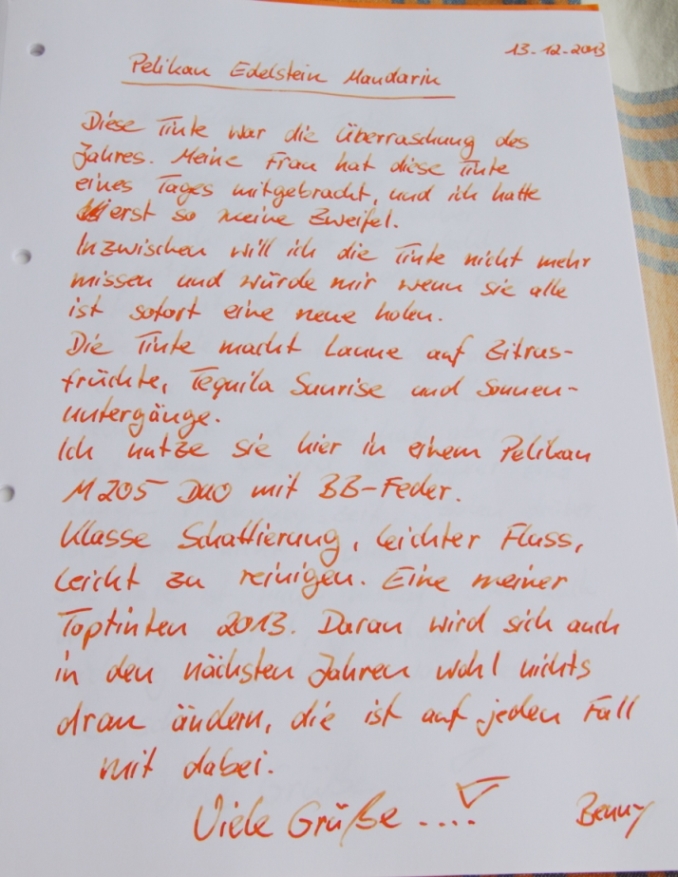 13-12-2013
Pelikan Edelstein Mandarin
Diese Tinte war die Überraschung des
Jahres. Meine Frau hat diese Tinte
eines Tages mitgebracht, und ich hatte
erst so meine Zweifel.
Inzwischen will ich die Tinte nicht mehr
missen und würde mir wenn sie alle
ist sofort eine neue holen.
Die Tinte macht Laune auf Zitrus-
früchte, Tequila Sunrise und Sonnen-
untergänge.
Ich nutze sie hier in einem Pelikan
M205 DUO mit BB-Feder.
Klasse Schattierung, leichter Fluss,
leicht zu reinigen. Eine meiner
Toptinten 2013. Daran wird sich auch
in den nächsten Jahren wohl nichts
dran ändern, die ist auf jeden Fall
mit dabei.
Viele Grüße ....
Benny